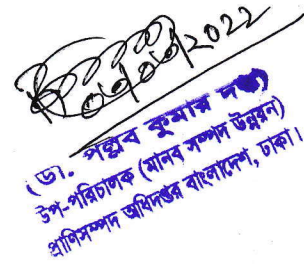 ০৬/০৬/২০২২
(ডা. পল্লব কুমার দত্ত)
উপ-পরিচালক (মানব সম্পদ উন্নয়ন)
প্রাণিসম্পদ অধিদপ্তর বাংলাদেশ, ঢাকা।